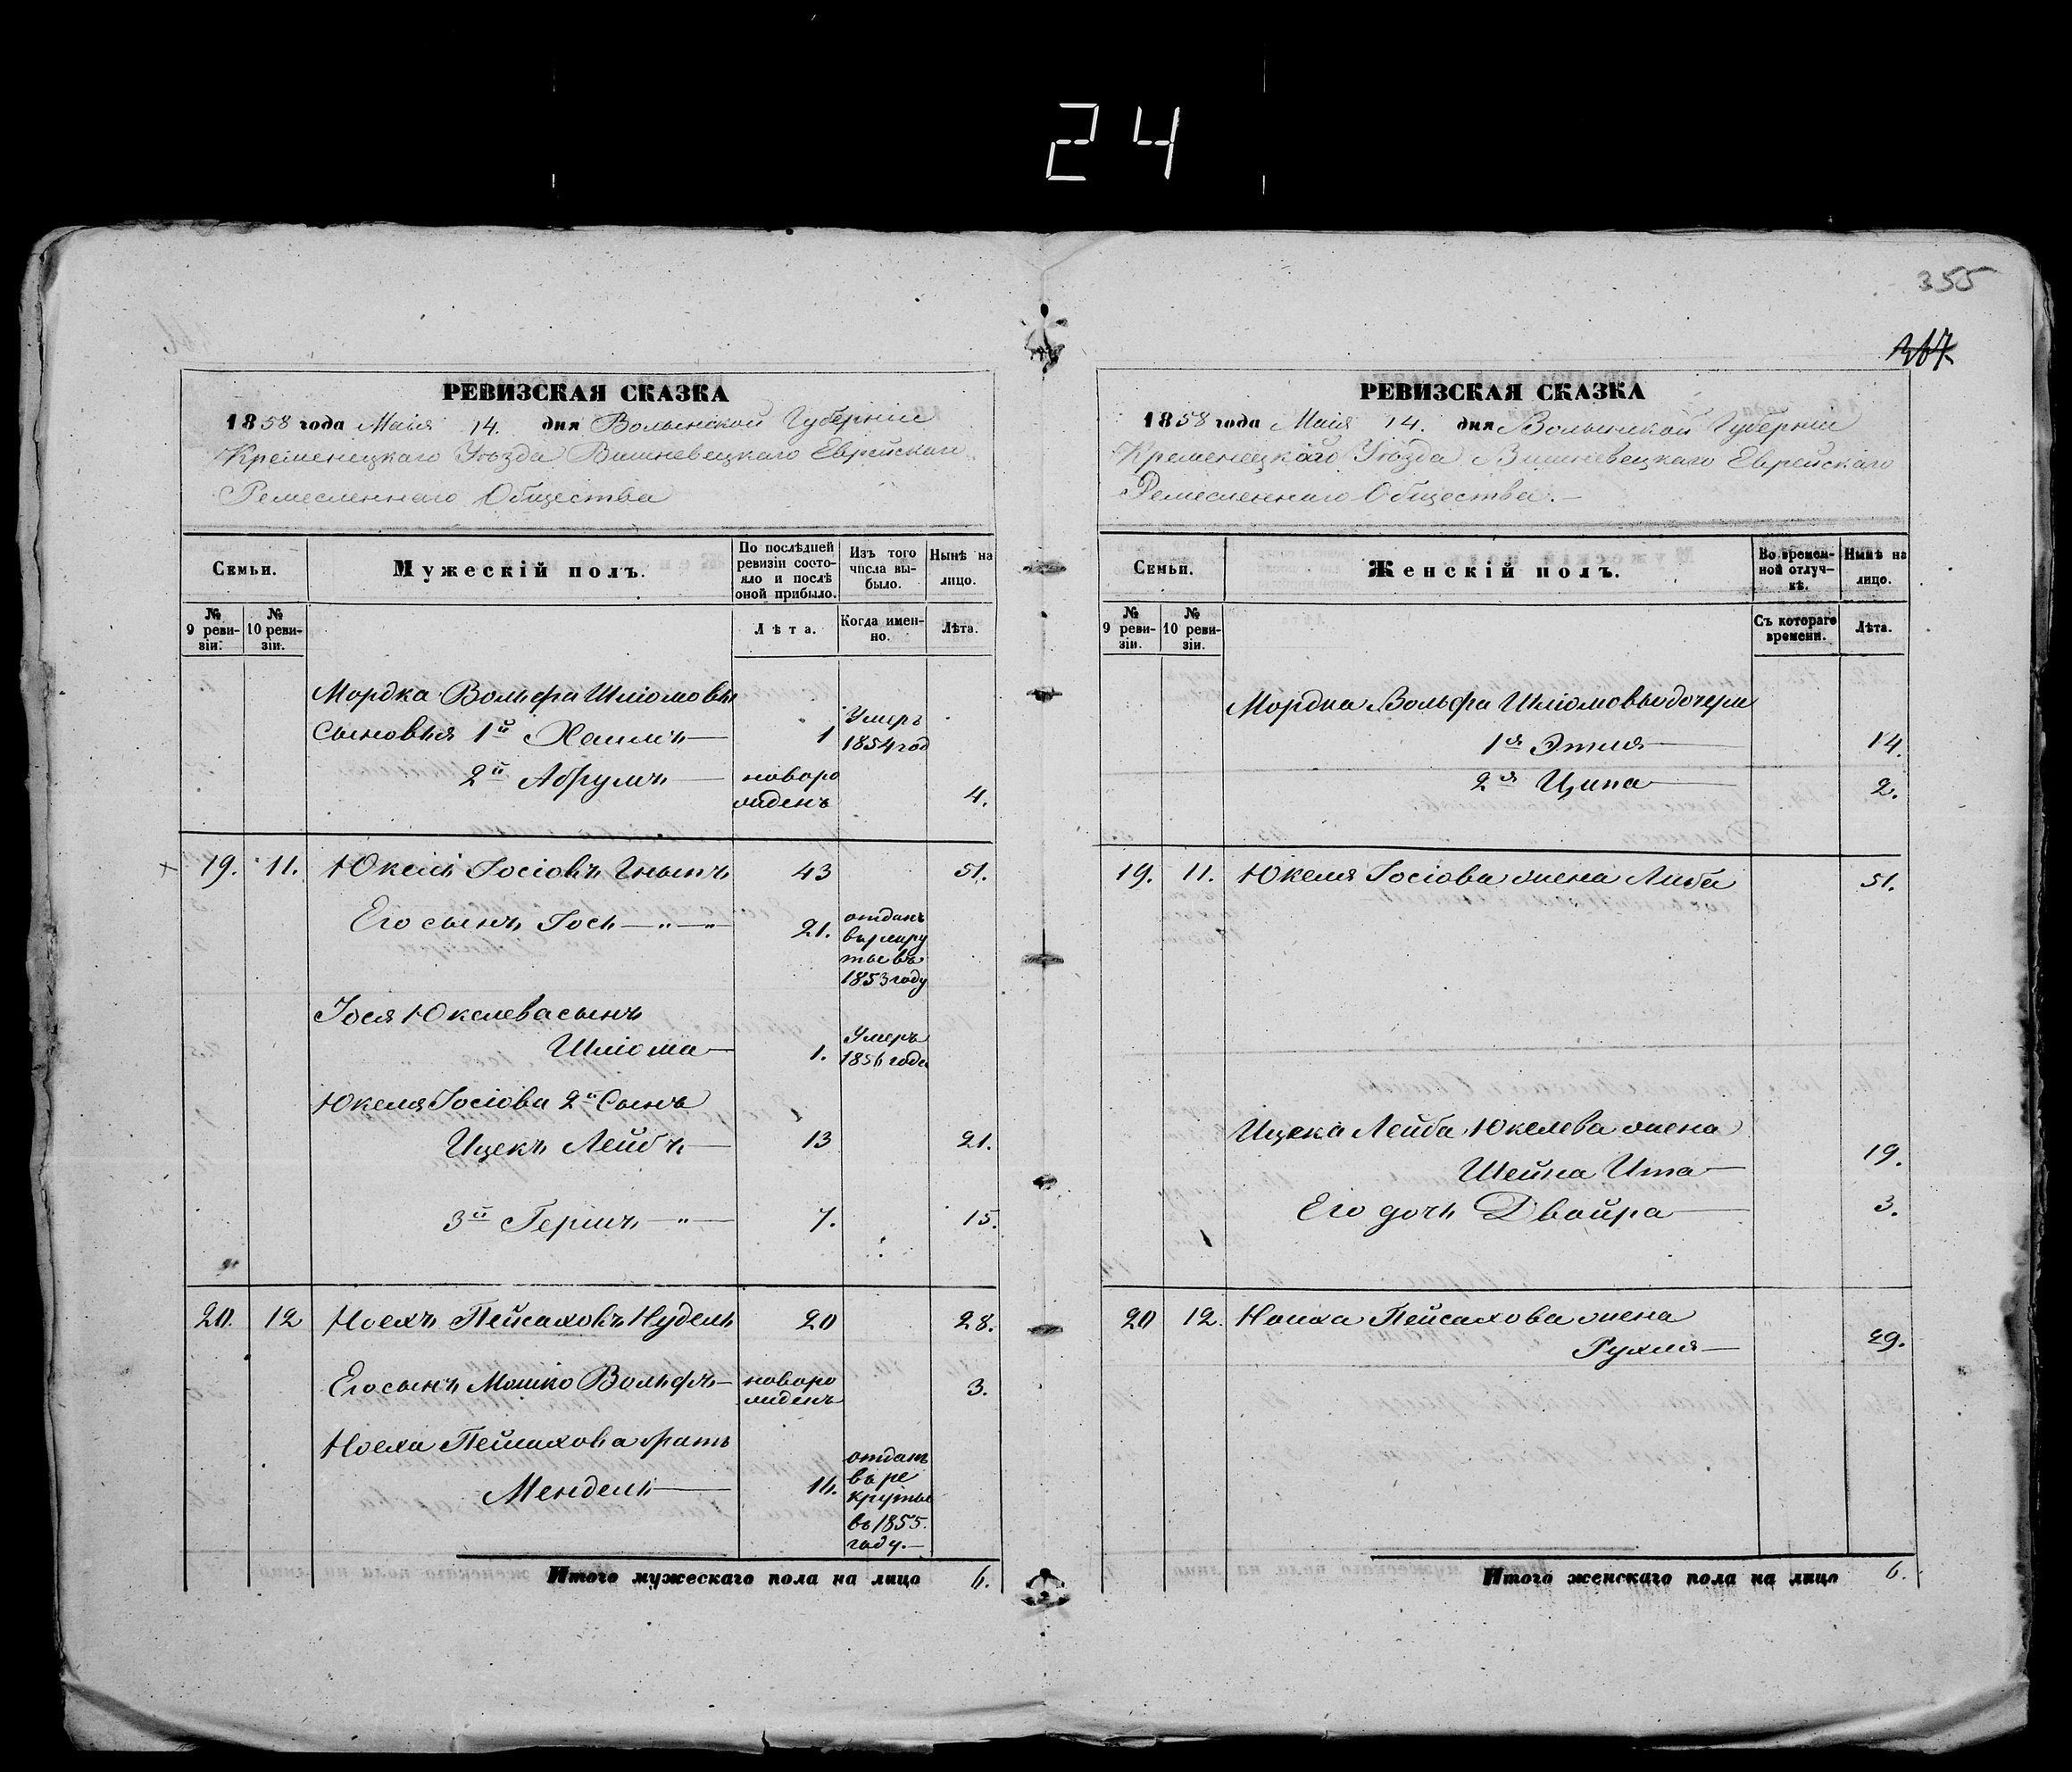 24
355
367
РЕВИЗСКАЯ СКАЗКА
1858 года Маія 14. дня Волынской Губерніи
Кременецкаго Уѣзда Вишневецкаго Еврейскаго
Ремесленнаго Общества
Семьи.
Мужескій полъ.
По послѣдней ревизіи состояло и послѣ оной прибыло.
Изъ того числа выбыло.
Нынѣ на лицо.
№ 9 ревизіи.
№ 10 ревизіи.
Лѣта.
Когда именно.
Лѣта.
Мордка Вольфа Шліомовы
сыновья 1й Хаимъ 1 Умеръ 1854 год
2й Абрумъ новорожденъ 4.
19. 11. Юкель Іосіовъ 43 51.
Его сынъ Іось 21. отданъ въ рекруты въ 1853 году
Іося Юкелева сынъ
Шліома 1. Умеръ 1856 года
Юкеля Іосіова 2й Сынъ
Ицекъ Лейбъ 13 21.
3й Гершъ 7. 15.
20. 12 Ноехъ Пейсаховъ Нудель 20 28.
Его сынъ Мошко Вольфъ новорожденъ 3.
Ноеха Пейсахова братъ
Мендель 16. отданъ въ рекруты въ 1855. году.
Итого мужескаго пола на лицо 6.
РЕВИЗСКАЯ СКАЗКА
1858 года Маія 14. дня Волынской Губерніи
Кременецкаго Уѣзда Вишневецкаго Еврейскаго
Ремесленнаго Общества.
Семьи.
Женскій полъ.
Во временной отлучкѣ.
Нынѣ на лицо.
№ 9 ревизіи.
№ 10 ревизіи.
Съ котораго времени.
Лѣта.
Мордка Вольфа Шліомовы дочери
1я Этля 14.
2я Ципа 2.
19. 11. Юкеля Іосіова жена Либа 51.
Ицека Лейба Юкелева жена
Шейна Ита 19.
Его дочь Двойра 3.
20 12. Ноиха Пейсахова жена
Рухля 29.
Итого женскаго пола на лицо 6.